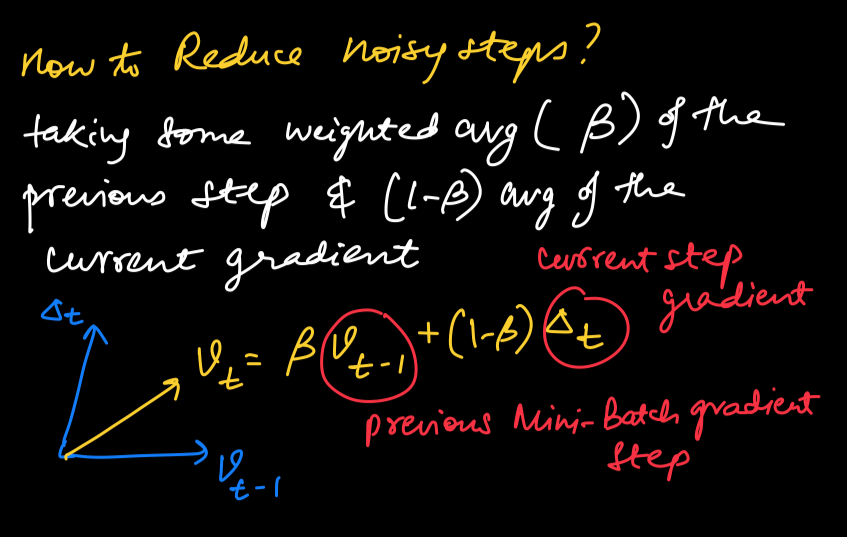 How to Reduce noisy steps?
taking some weighted avg ( β) of the
previous step & (1-β) avg of the
current gradient
current step
gradient
Δt
𝒱t = β 𝒱t-1 + (1-β) Δt
previous Mini-Batch gradient
step
𝒱t-1